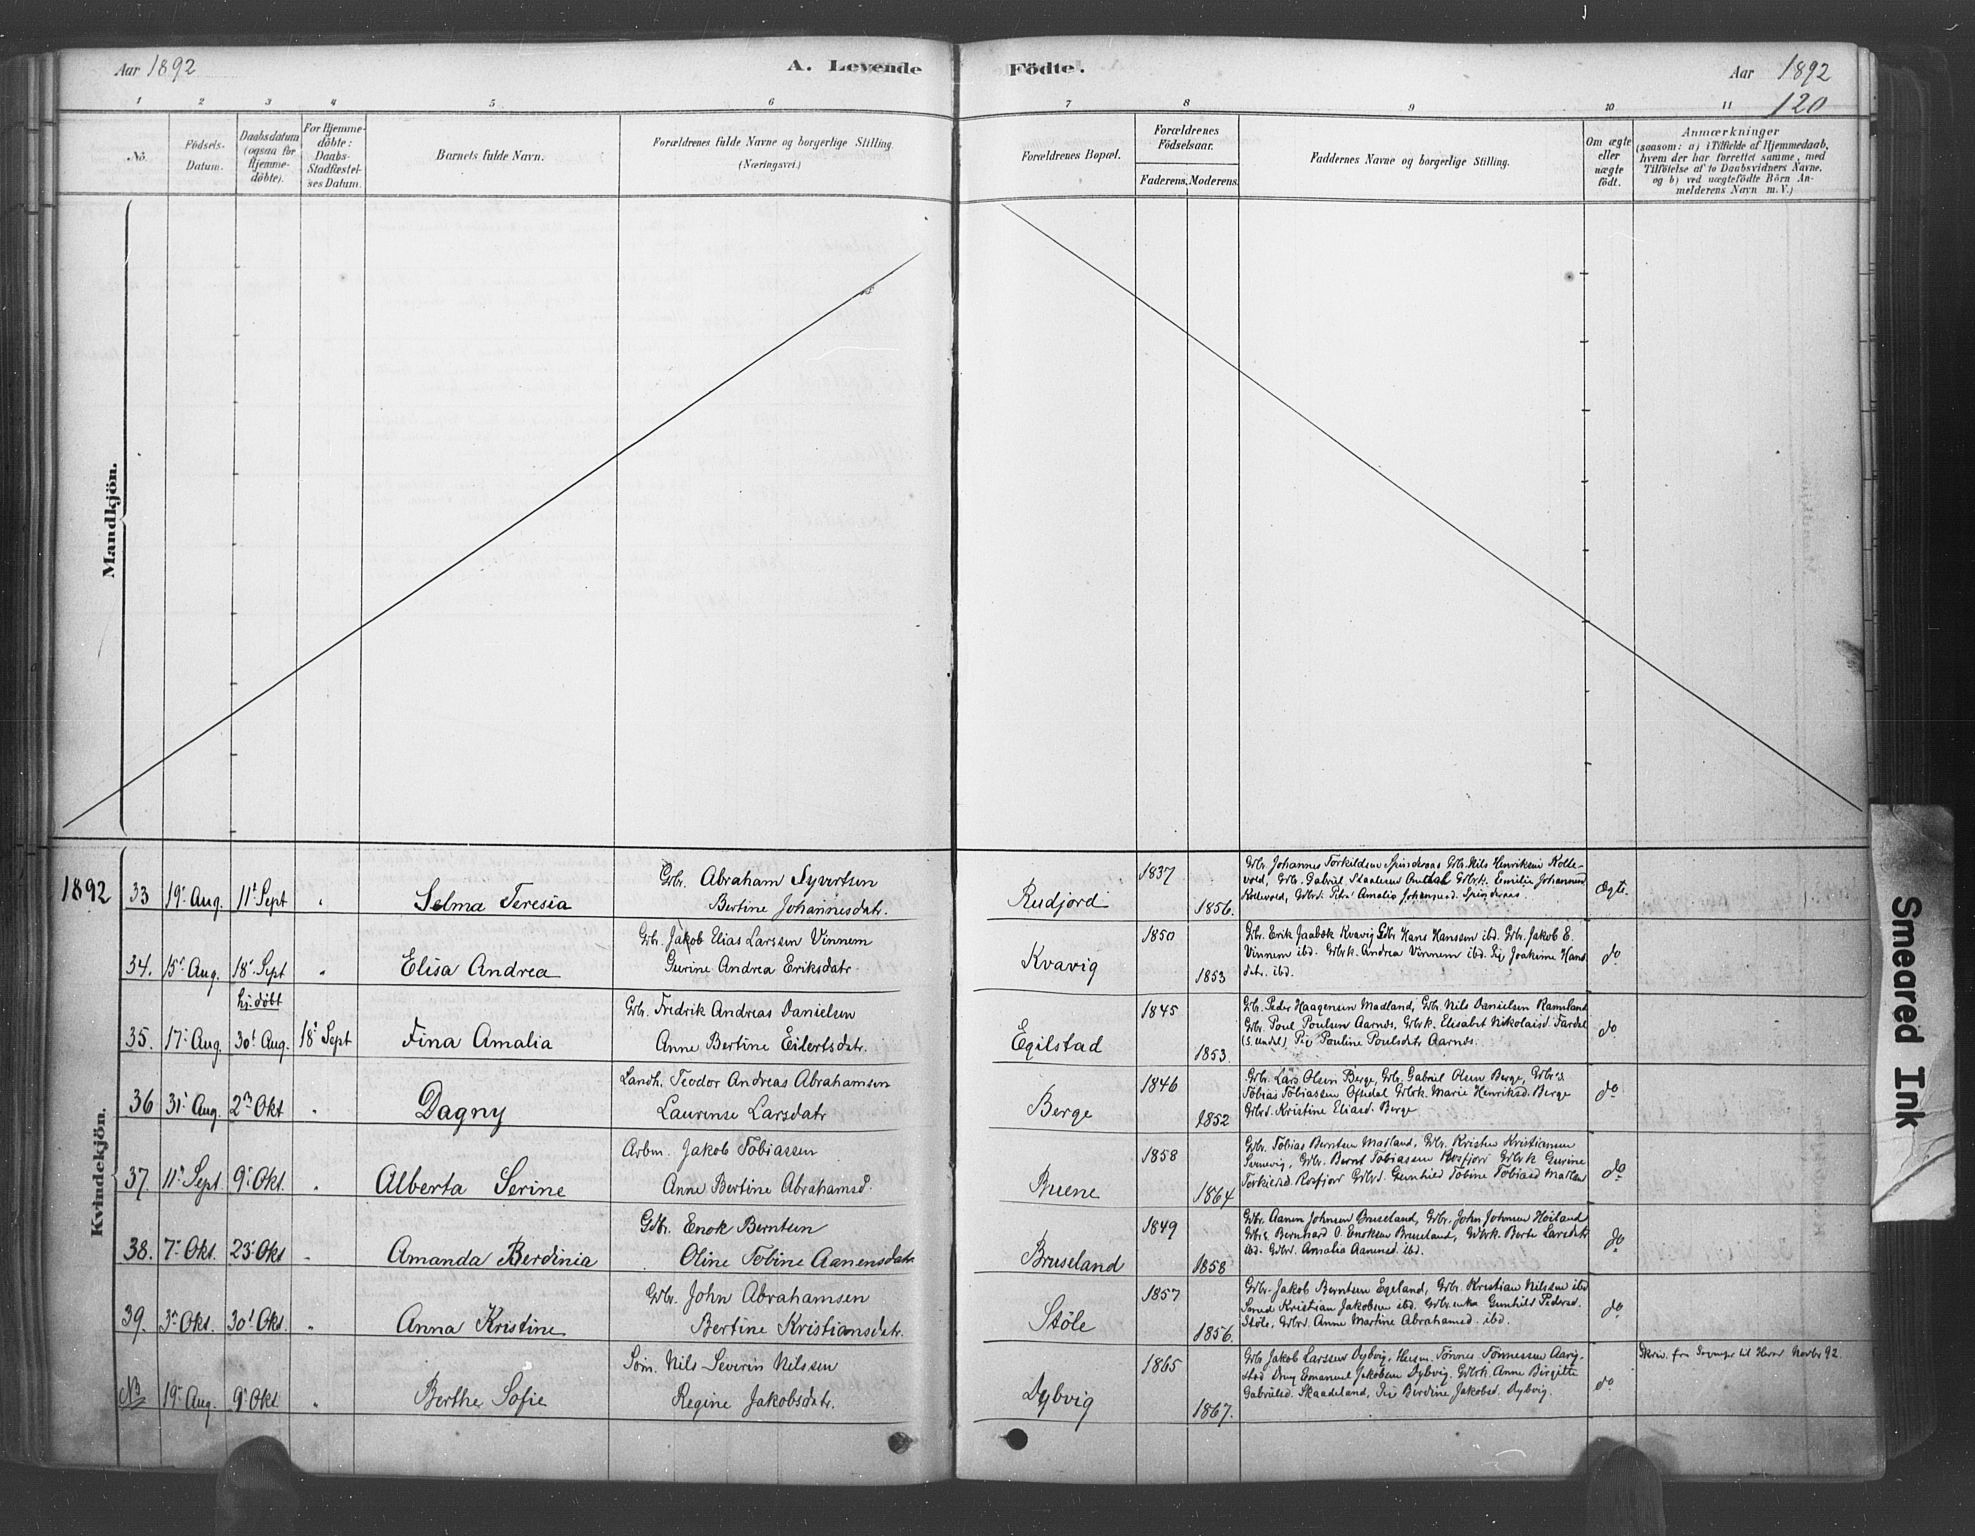 Aar 1892
A. Levende
Födte.
Aar 1892
120
1 2 3 4 5 6 7 8 9 10 11
No.
Födsels-
Datum.
Daabsdatum
(ogsaa for
Hjemme-
döbte).
For Hjemme-
döbte:
Daabs-
Stadfæstel-
ses Datum.
Barnets fulde Navn.
Forældrenes fulde Navne og borgerlige Stilling.
(Næringsvei.)
Forældrenes Bopæl.
Forældrenes
Födselsaar.
Faderens. Moderens.
Faddernes Navne og borgerlige Stilling.
Om ægte
eller
uægte
födt.
Anmærkninger
(saasom: a) i Tilfælde af Hjemmedaab,
hvem der har forrettet samme, med
Tilföielse af to Daabsvidners Navne,
og b) ved uægtefödte Börn An-
melderens Navn m. V.)
Mandkjön.
Kvindekjön.
1892
33 19. Aug. 11. Sept Selma Teresia
Gbr. Abraham Syvertsen
Bertine Johannesdatr.
Rudjord 1837 1856.
Gbr. Johannes Torkildsen Spindsaas Gbr. Nils Henriksen Kolle-
vold, Gbr. Gabriel Gbrk. Emilie Johannesd
Kollevold, Gbrd. Petra Amalia Johannesd.
Ægte.
34. 15. Aug. 18. Sept Elisa Andrea
Gbr. Jakob Elias Larssen Vinnem
Gurine Andrea Eriksdatr.
Kvavig 1850 1853
Gbr. Erik Jaabæk Kvavig Gbr Hans Hanssen ibd. Gbr. Jakob E.
Vinnem ibd. Gbrk. Andrea Vinnem ibd. Pig Joakime Hans
datr. ibd.
do
hj. döbt
35. 17. Aug. 30. Aug. 18. Sept Fina Amalia
Gbr. Fredrik Andreas Danielsen
Anne Bertine Eilertsdatr.
Egilstad 1845 1853.
Gbr. Peder Haagensen Madland, Gbr. Nils Danielsen Ramsland
Gbr. Poul Poulsen Aarnes, Gbrk. Elisabet Nikolaisd. Fardal
(S. Undal) Pig Pouline Poulsdatr Aarnes.
do
36 31. Aug. 2. Okt Dagny
Landh. Teodor Andreas Abrahamsen
Laurense Larsdatr
Berge 1846 1852
Gbr. Lars Olsen Berge, Gbr. Gabriel Olsen Berge, Gbr s.
Tobias Tobiassen Oftedal Gbrk. Marie Henriksd. Berge
Gbrd. Kristine Eliasd. Berge
do
37. 11. Sept. 9. Okt. Alberta Serine
Arbm. Jakob Tobiassen
Anne Bertine Abrahamsd.
Buene 1858 1864
Gbr. Tobias Berntsen Madland, Gbr. Krister Kristiansen
Gbr. Bernt Tobiassen Rosfjord Gbrk Gurine
Rosfjord Gbrd. Gunhild Tobine Tobiasd Madland
do
38. 7. Okt. 23. Okt Amanda Berdinia
Gbr. Enok Berntsen
Oline Tobine Aanensdatr.
Bruseland 1849 1858
Gbr. Aanen Johnsen Bruseland, Gbr. John Johnsen Höiland
Gbr s. Bernhard O. Enoksen Bruseland, Gbrk. Berte Larsdatr
ibd. Gbrd. Amalia Aanensd. ibd.
do
39. 3. Okt. 30. Okt. Anna Kristine
Gbr. John Abrahamsen
Bertine Kristiansdatr.
Stöle 1857 1856.
Gbr. Jakob Berntsen Egeland, Gbr. Kristian Nilssen ibd
Kristian Jakobsen ibd. Gbr. enke Gunhild Pedersd.
Stöle, Gbrd. Anne Martine Abrahamsd. ibd.
do
NB 19. Aug. 9. Okt Berthe Sofie
Söm. Nils Severin Nilssen
Regine Jakobsdatr.
Dybvig 1865 1867.
Gbr Jakob Larssen Dybvig, Husm. Tönnes Tönnessen Aarig-
stad Ung Emanuel Jakobsen Dybvig. Gbrk. Anne Birgitte
Gabrielsd. Skaadeland, Pig Berdine Jakobsd. Dybvig.
do
til Herad Novbr 92.
Smeared Ink